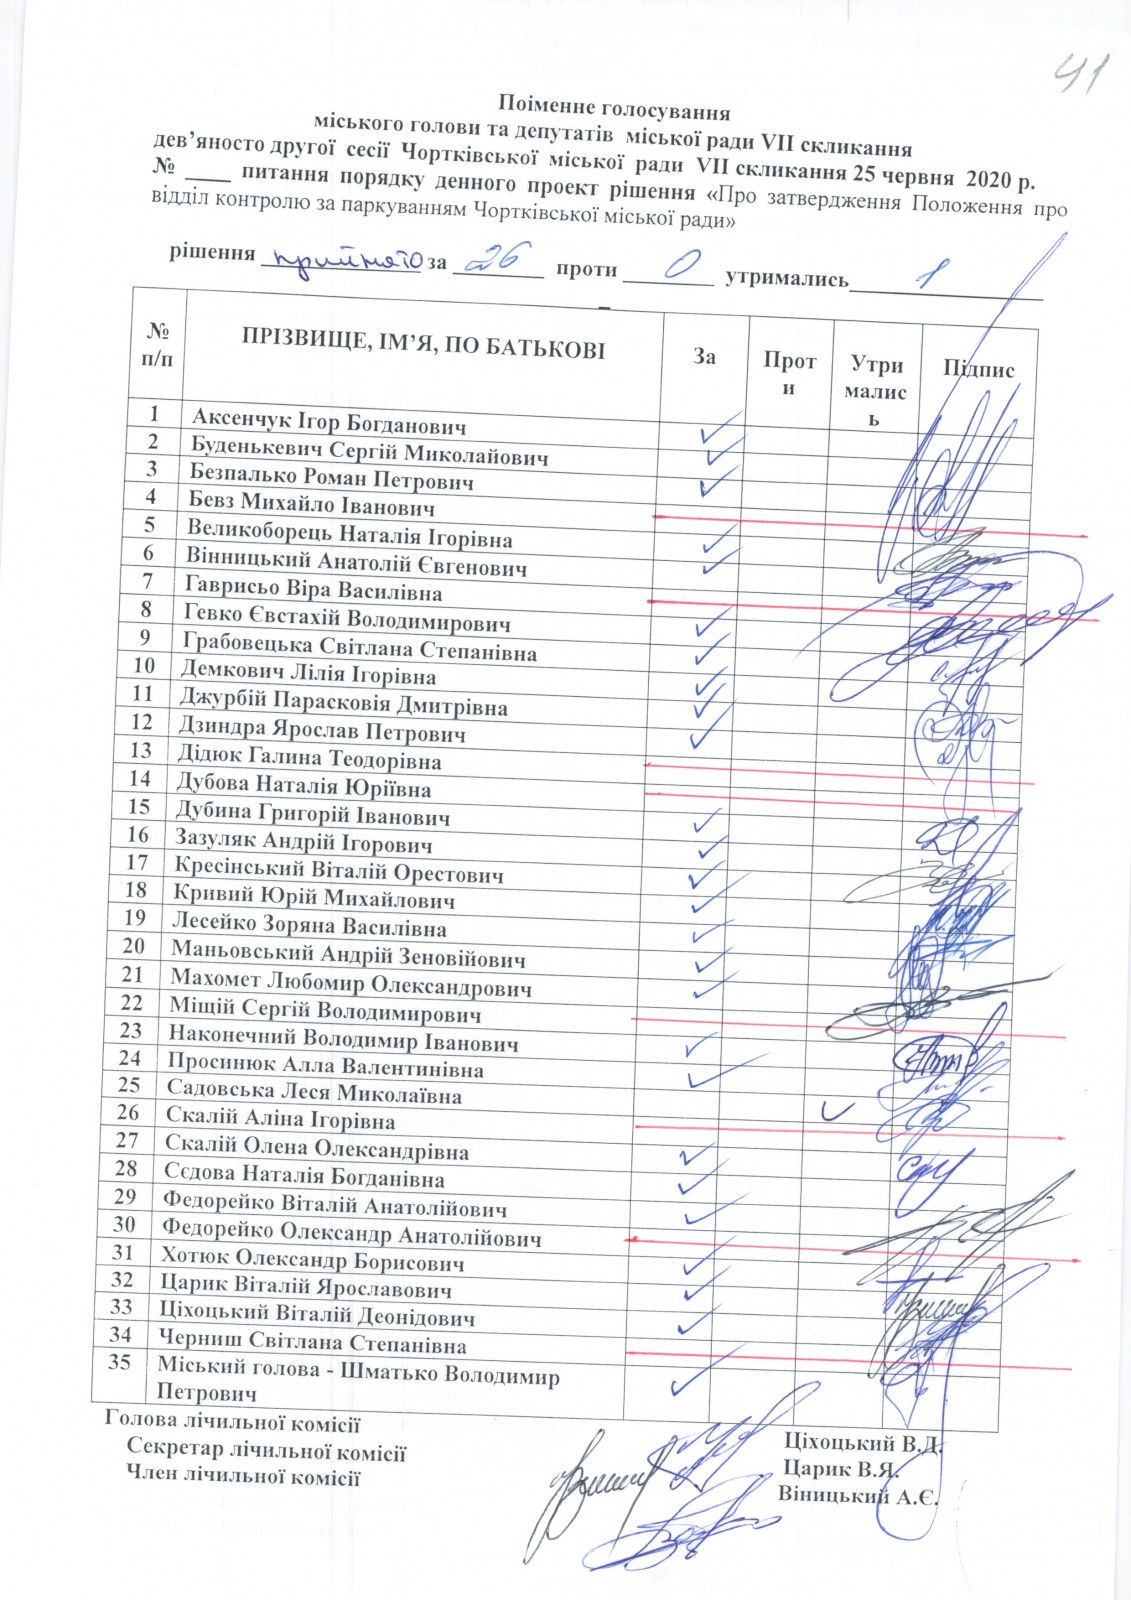 41
Поіменне голосування
міського голови та депутатів міської ради VII скликання
дев’яносто другої сесії Чортківської міської ради VII скликання 25 червня 2020 р.
№ ____ питання порядку денного проект рішення «Про затвердження Положення про
відділ контролю за паркуванням Чортківської міської ради»
рішення прийнято за 26 проти 0 утримались 1
№ п/п ПРІЗВИЩЕ, ІМ’Я, ПО БАТЬКОВІ За Проти Утрималсь Підпис
1 Аксенчук Ігор Богданович
2 Буденькевич Сергій Миколайович
3 Безпалько Роман Петрович
4 Бевз Михайло Іванович
5 Великоборець Наталія Ігорівна
6 Вінницький Анатолій Євгенович
7 Гаврисьо Віра Василівна
8 Гевко Євстахій Володимирович
9 Грабовецька Світлана Степанівна
10 Демкович Лілія Ігорівна
11 Джурбій Парасковія Дмитрівна
12 Дзиндра Ярослав Петрович
13 Дідюк Галина Теодорівна
14 Дубова Наталія Юріївна
15 Дубина Григорій Іванович
16 Зазуляк Андрій Ігорович
17 Кресінський Віталій Орестович
18 Кривий Юрій Михайлович
19 Лесейко Зоряна Василівна
20 Маньовський Андрій Зеновійович
21 Махомет Любомир Олександрович
22 Міщій Сергій Володимирович
23 Наконечний Володимир Іванович
24 Просинюк Алла Валентинівна
25 Садовська Леся Миколаївна
26 Скалій Аліна Ігорівна
27 Скалій Олена Олександрівна
28 Сєдова Наталія Богданівна
29 Федорейко Віталій Анатолійович
30 Федорейко Олександр Анатолійович
31 Хотюк Олександр Борисович
32 Царик Віталій Ярославович
33 Ціхоцький Віталій Деонідович
34 Черниш Світлана Степанівна
35 Міський голова - Шматько Володимир
Петрович
Голова лічильної комісії Ціхоцький В.Д.
Секретар лічильної комісії Царик В.Я.
Член лічильної комісії Віницький А.Є.